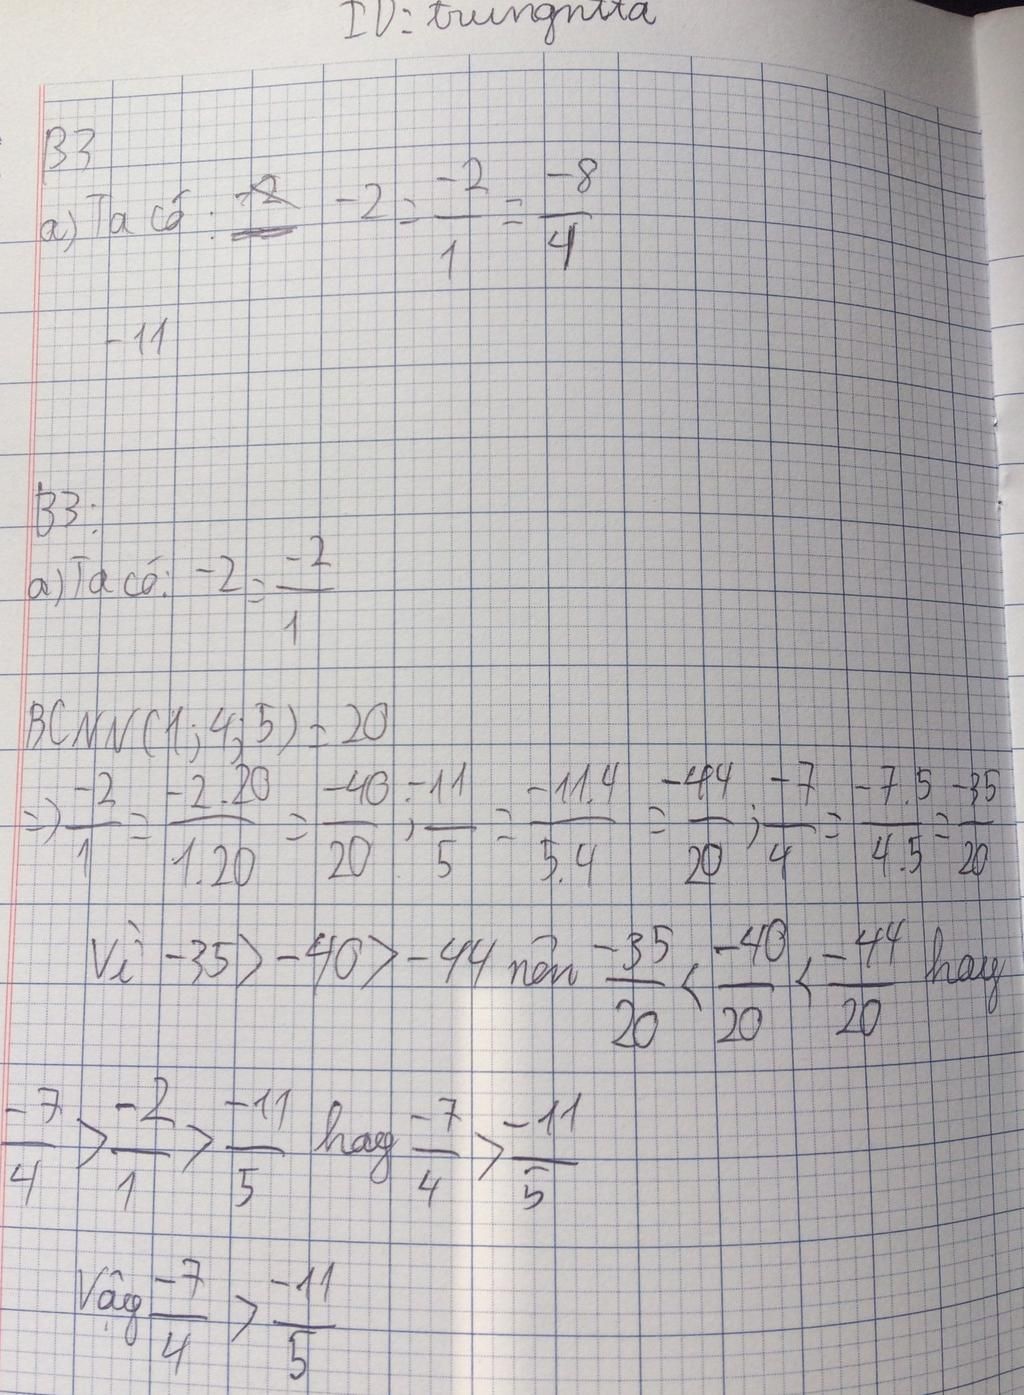 ID: trungntta
B3
a) Ta có: -2 -2 = -2/1 = -8/4
-11
B3:
a) Ta có: -2 = -2/1
BCNN(1;4;5) = 20
=> -2/1 = -2.20/1.20 = -40/20 ; -11/5 = -11.4/5.4 = -44/20 ; -7/4 = -7.5/4.5 = -35/20
Vì -35 > -40 > -44 nên -35/20 < -40/20 < -44/20 hay
-7/4 > -2/1 > -11/5 hay -7/4 > -11/5
Vậy -7/4 > -11/5